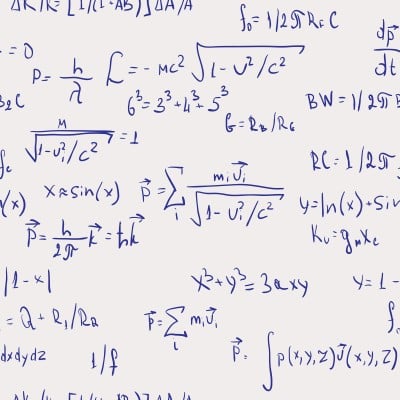 ΔK/K = [1/(1-AB)]ΔA/A
f₀ = 1/2πR_FC
= 0
P = h/λ
ℒ = - mc² √(1-v²/c²)
dp⃗/dt
6³=3³+4³+5³
BW = 1/2πB
B₂C
G = R_B/R_G
M/√(1-v_i²/c²) = 1
RC = 1/2π
f_c
x≈sin(x)
p⃗ = ∑_i m_iv⃗_i/√(1-v_i²/c²)
(x)
y=ln(x)+sin
p⃗ = h/2π k⃗ = ħk⃗
K_u = g_m x_c
|1-x|
x³+y³=3axy
y=1-
= Q+R₁/R_A
p⃗=∑_i m_iv⃗_i
f
dxdydz
1/f
p⃗ = ∫p(x,y,z)v⃗(x,y,z)